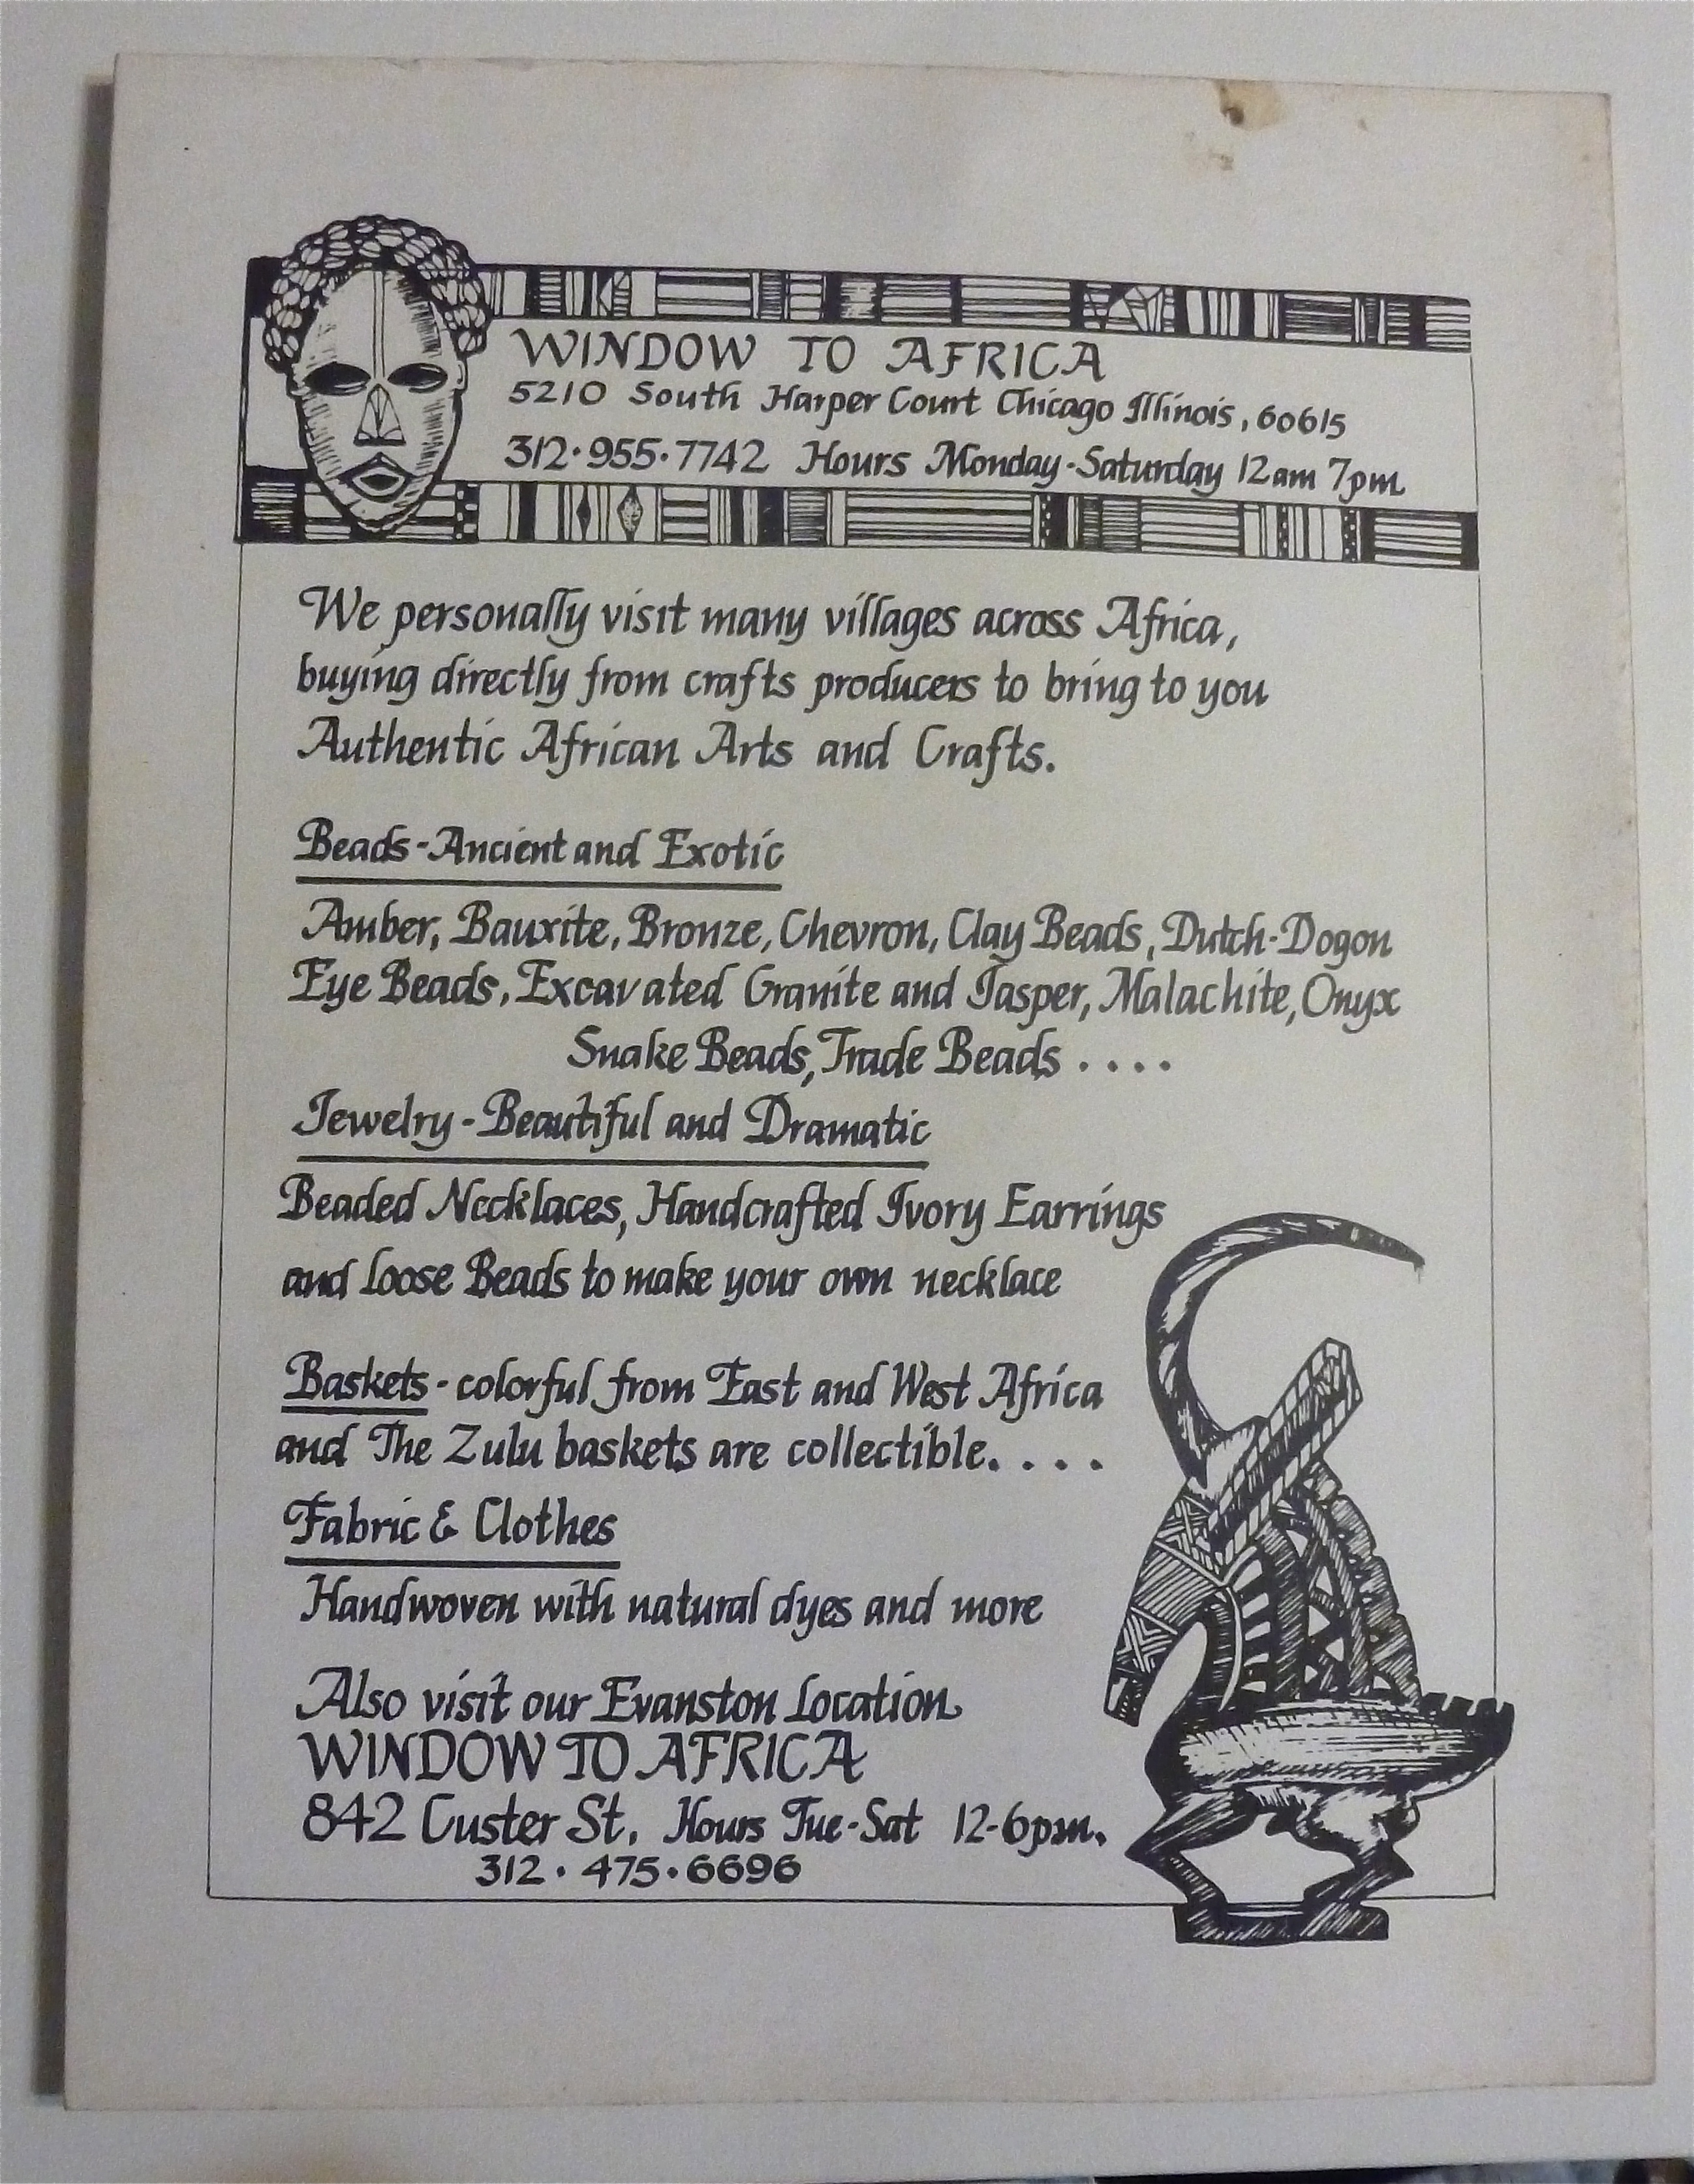 WINDOW TO AFRICA
5210 South Harper Court Chicago Illinois, 60615
312·955·7742 Hours Monday-Saturday 12am 7pm
We personally visit many villages across Africa,
buying directly from crafts producers to bring to you
Authentic African Arts and Crafts.
Beads-Ancient and Exotic
Amber, Bauxite, Bronze, Chevron, Clay Beads, Dutch-Dogon
Eye Beads, Excavated Granite and Jasper, Malachite, Onyx
Snake Beads, Trade Beads . . . .
Jewelry-Beautiful and Dramatic
Beaded Necklaces, Handcrafted Ivory Earrings
and Loose Beads to make your own necklace
Baskets - colorful from East and West Africa
and The Zulu baskets are collectible. . . .
Fabric & Clothes
Handwoven with natural dyes and more
Also visit our Evanston Location
WINDOW TO AFRICA
842 Custer St. Hours Tue-Sat 12-6pm.
312 · 475 · 6696